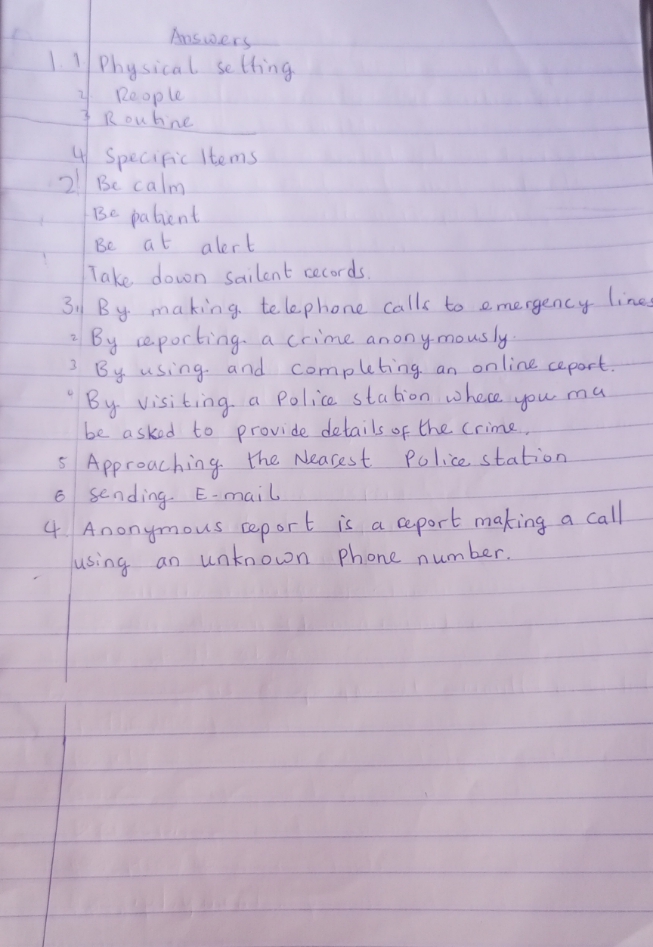 Answers
1. 1 Physical setting
2 People
3 Routine
4 Specific Items
2. Be calm
Be patient
Be at alert
Take down sailent records.
3. 1 By making telephone calls to emergency lines
2 By reporting a crime anonymously.
3 By using and completing an online report.
4 By visiting a Police station where you ma
be asked to provide details of the crime.
5 Approaching the Nearest Police station
6 Sending E-mail
4. Anonymous report is a report making a call
using an unknown Phone number.